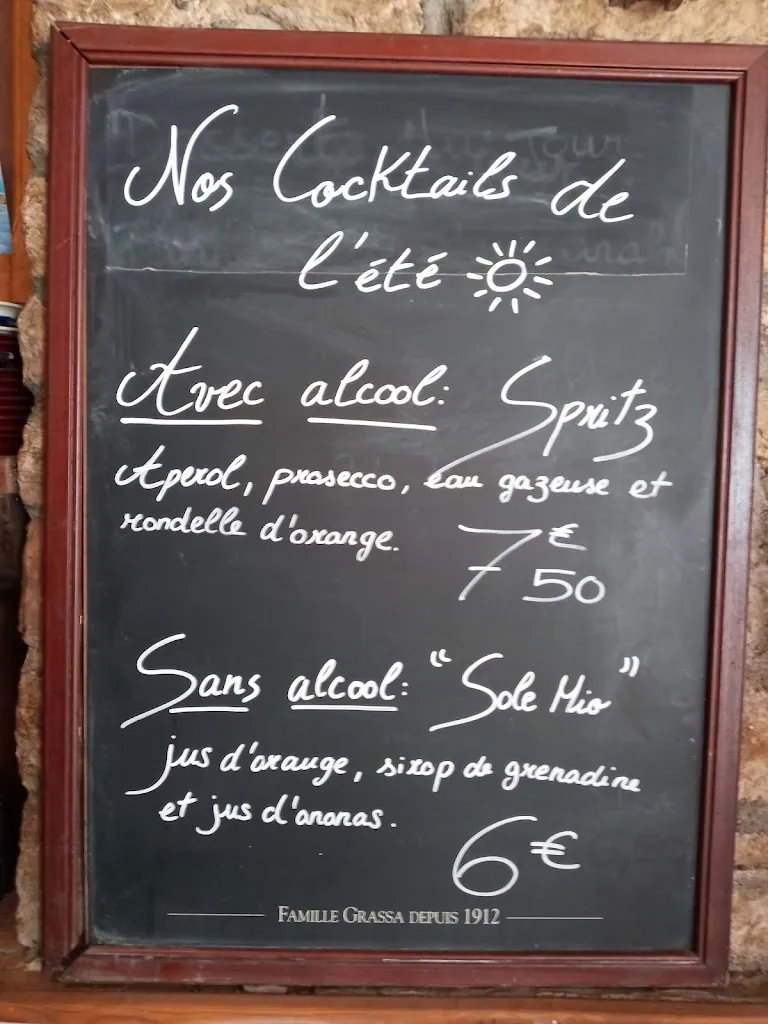 Nos Cocktails de
l'été
Avec alcool: Spritz
Aperol, prosecco, eau gazeuse et
rondelle d'orange.
7€50
Sans alcool: "Sole Mio"
jus d'orange, sirop de grenadine
et jus d'ananas.
6€
FAMILLE GRASSA DEPUIS 1912